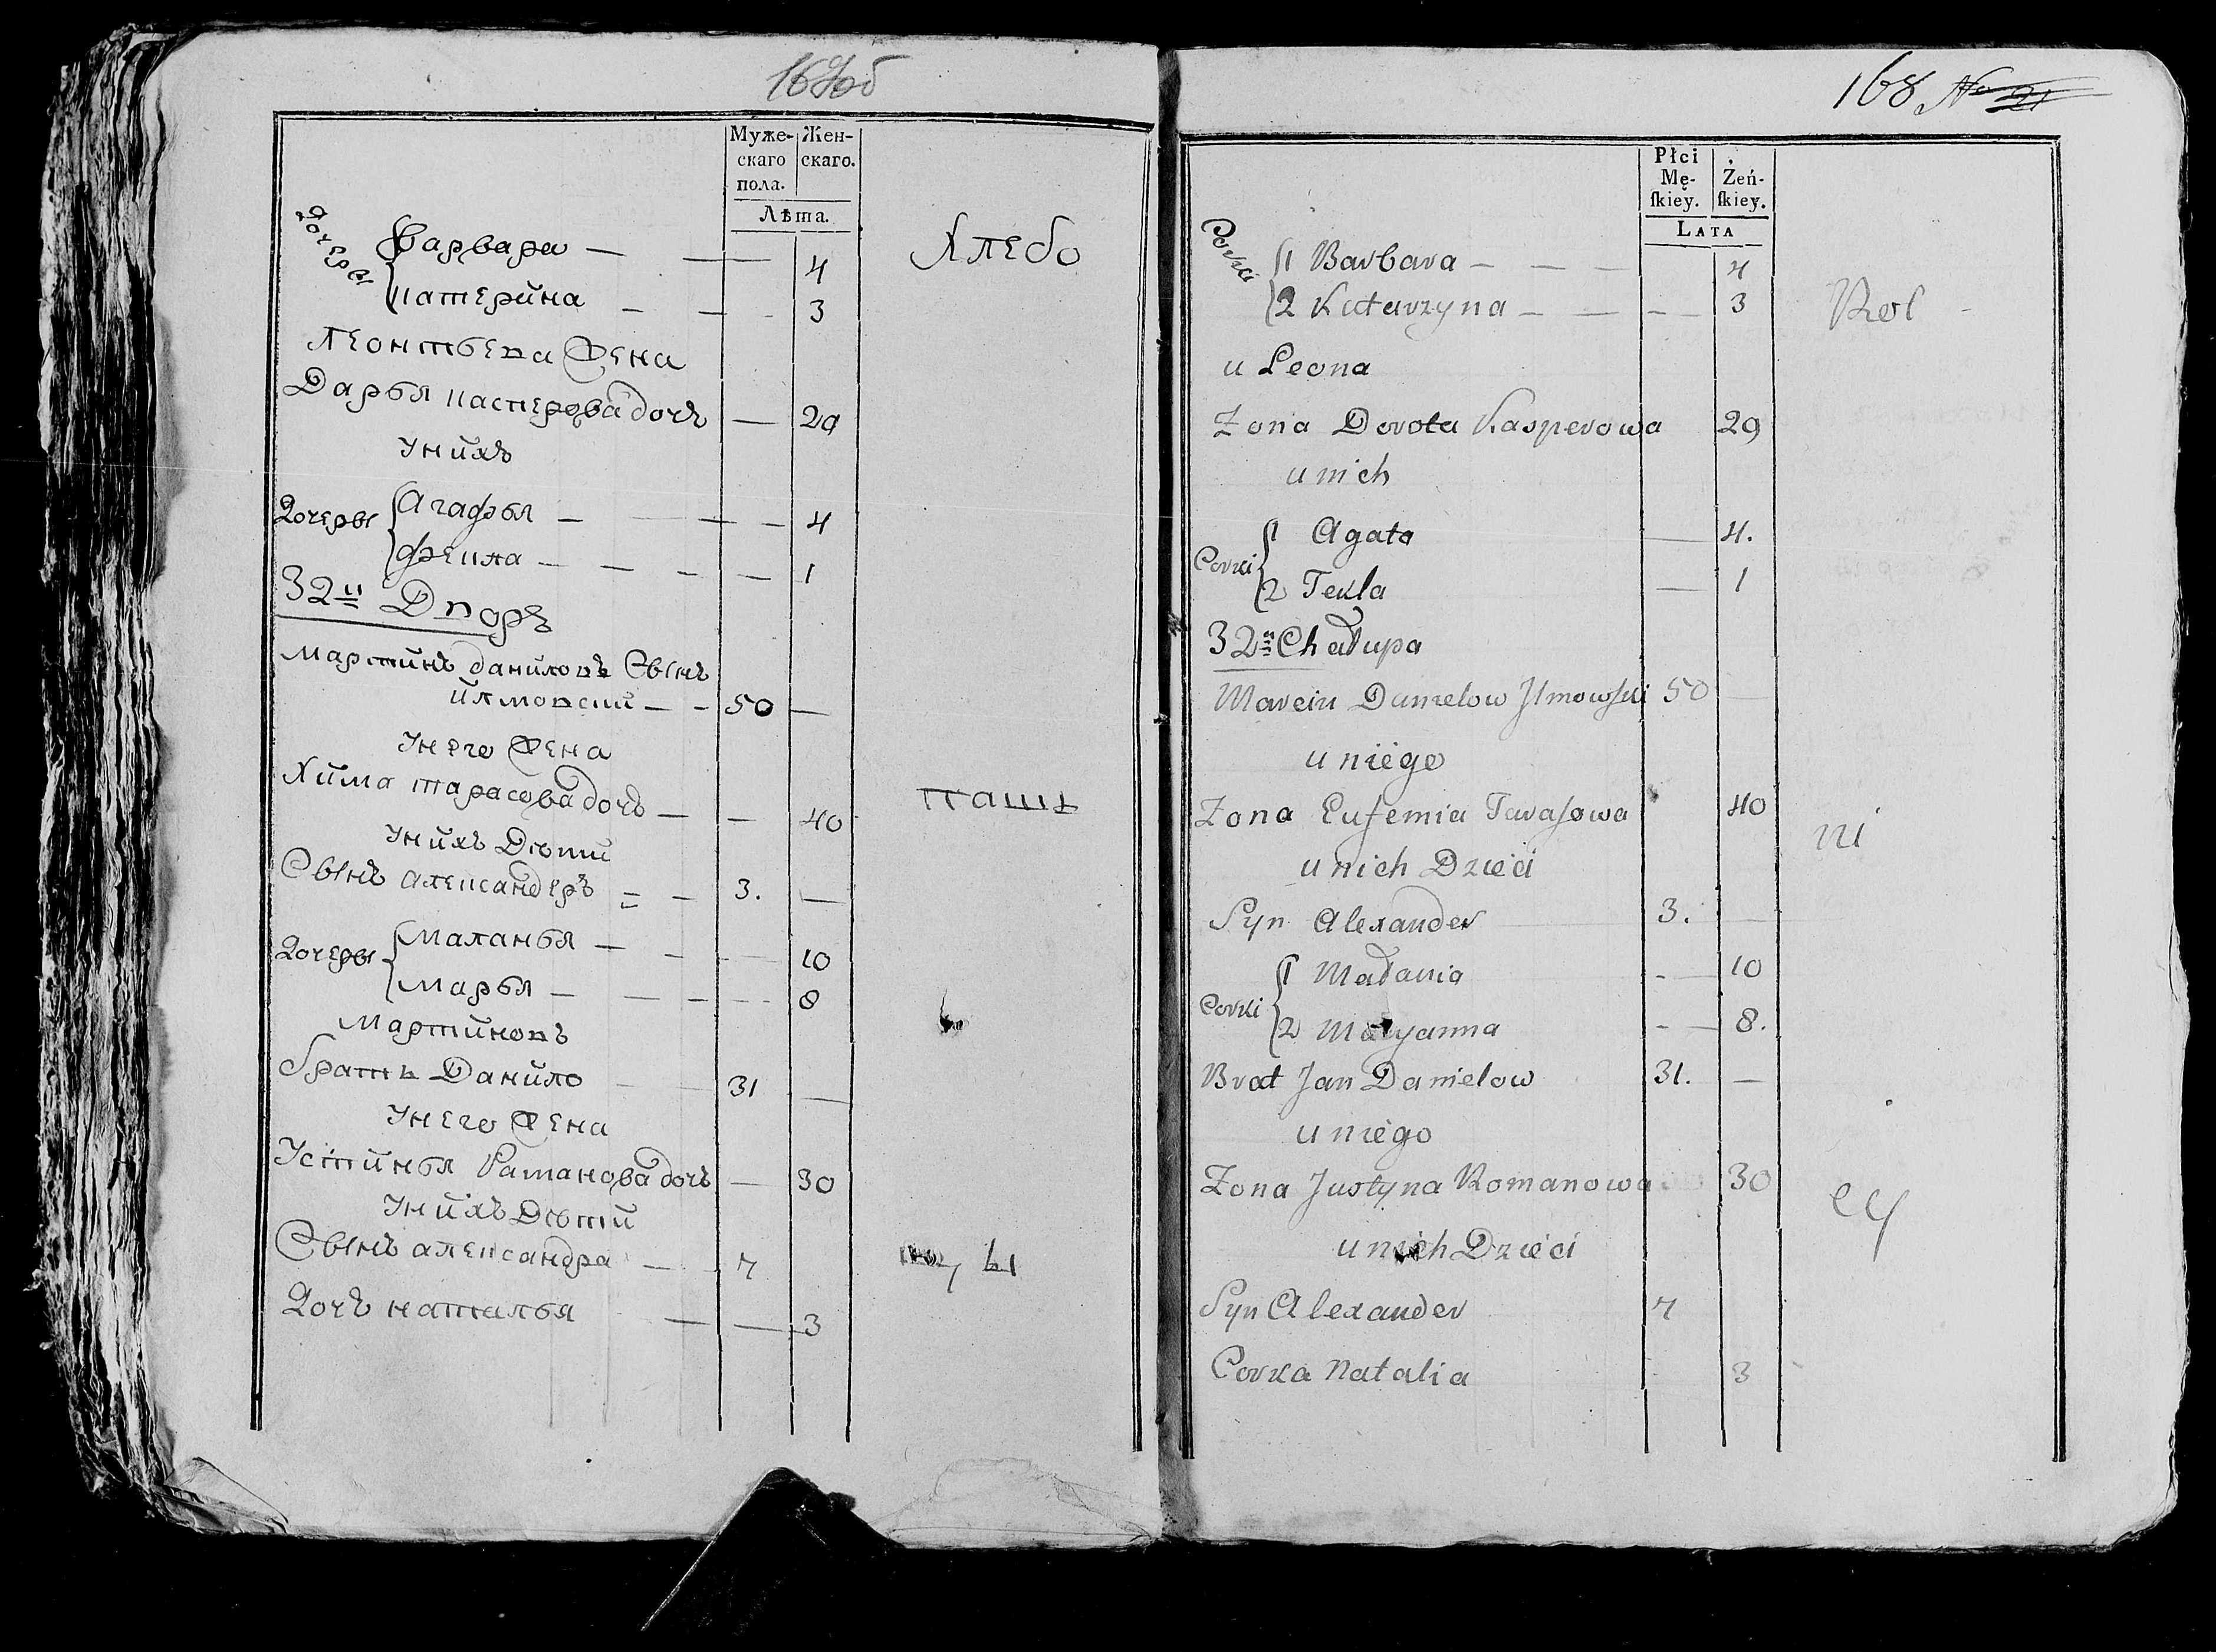 167об
Муже- Жен-
скаго скаго.
пола.
Лѣта.
Дочеры
Варвара — — 4
Катерина — — - 3
Леонтьева Жена
Дарья Касперова дочъ — 29
У нихъ
Дочеры
Агафья — — — 4
Фекла — — - — 1
32й Дворъ
Мартинъ даниловъ Сынъ
Илмовский — - 50 —
У него Жена
Хима тарасова дочъ — — 40
У нихъ Дѣти
Сынъ александеръ = - 3. —
Дочеры
Маланья — - - — 10
Марья — — - - - 8
Мартиновъ
братъ Данило — 31 —
У него Жена
Устинья Рамановa дочъ — 30
У нихъ Дѣти
Сынъ александра — 7
Дочъ наталья — — 3
Хлебо
паши
цы
168 No 21
Płci
Mę- Żeń-
ſkiey. ſkiey.
LATA
Corki
1 Barbara — — — 4
2 Katarzyna — — - — 3
u Leona
Zona Dorota Kasperowa 29
u nich
Corki
1 Agata — 4.
2 Tekla — 1
32a Chałupa
Marcin Danielow Jlmowſki 50 —
u niego
Zona Eufemia Taraſowa 40
u nich Dzieci
Syn Alexander 3. —
Corki
1 Małania - — 10
2 Maryanna - — 8.
Brat Jan Danielow 31. —
u niego
Zona Justyna Romanowa 30
u nich Dzieci
Syn Alexander 7
Corka Natalia 3
Rol -
ni
cy